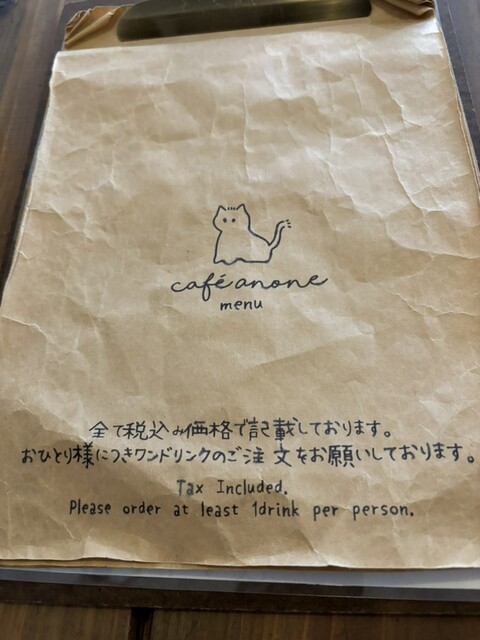 café anone
menu
全て税込み価格で記載しております。
おひとり様につきワンドリンクのご注文をお願いしております。
Tax Included.
Please order at least 1drink per person.